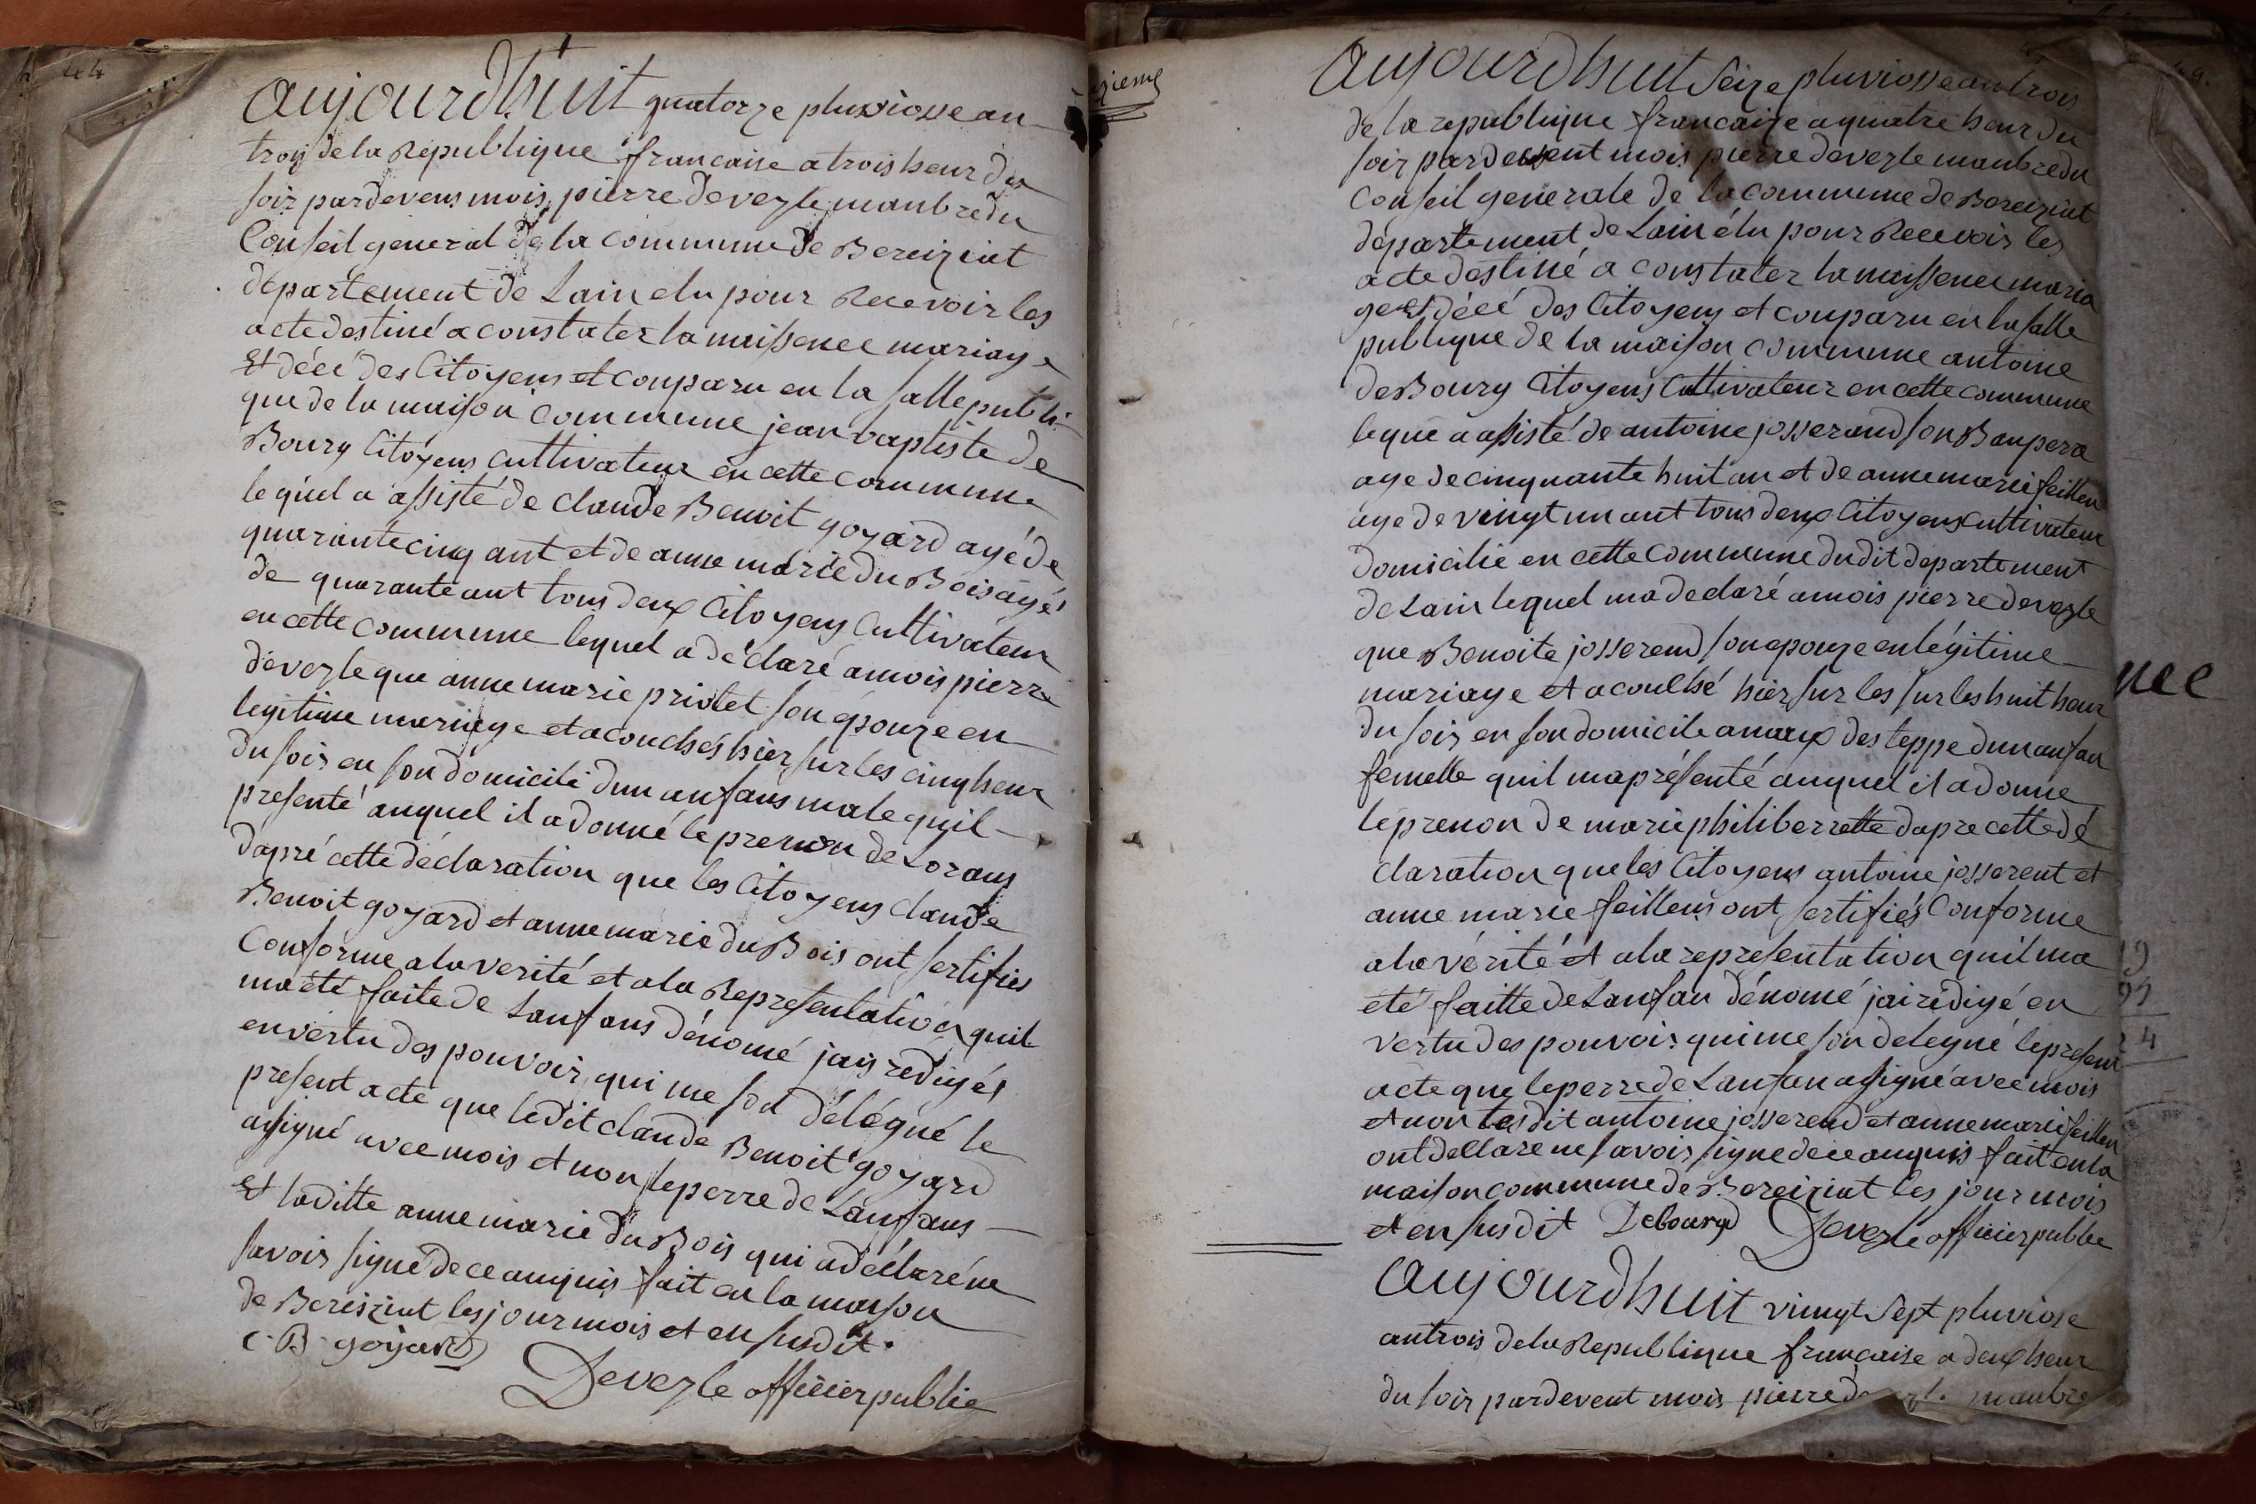 44
aujourdhuit quatorze pluviosse an
trois de la Republique francaise a trois heur du
soir pardevens mois pierre devezle manbre du
Conseil general de la commune de Bereiziat
département de Lain elu pour Recevoir les
acte destiné a constater la naissence mariage
Et décé des Citoyens et conparu en la salle publi
que de la maison commune jean baptiste de
Boury Citoyens cultivateur en cette commune
lequel a assisté de claude Benoit goyard agé de
quarante cinq ant et de anne marie du Bois agés
de quarante ant tous deux Citoyens Cultivateur
en cette commune lequel a déclaré a mois pierre
devezle que anne marie priolet son epouze en
legitime mariage et acouchés hier sur les cinq heur
du soir en son domicile dun anfans male quil
presenté auquel il a donné le prenon de Lorans
dapré cette déclaration que les Citoyens claude
Benoit goyard et anne marie du Bois ont sertifies
Conforme a la verité et a la Representation quil
ma eté faite de Lanfans dénomé jais redigés
en vertu des pouvoir qui me son délégué le
present acte que ledit claude Benoit goyard
assigné avec mois et non le perre de Lanfans
Et laditte anne marie du Bois qui a déclaré ne
savoir signé de ce anquis fait en la maison
de Bereiziat les jour mois et en susdit.
C. B. goyard
Devezle officier public
aujourdhuit Seize pluviosse an trois
de la republique francaise a quatre heur du
soir pardevent mois pierre devezle manbre du
Conseil generale de la commune de Bereiziat
département de Lain élu pour Recevoir les
acte destiné a constater la naissence maria
ge et décé des Citoyens et conparu en la salle
publique de la maison commune antoine
de Boury Citoyens Cultivateur en cette commune
lequel a assisté de antoine josserand son Beaupera
age de cinquante huit an et de anne marie feillens
age de vingt un ant tous deux Citoyens cultivateur
domicilie en cette commune dudit departement
de Lain lequel ma declaré a mois pierre devezle
que Benoite josserend son epouze en légitime
mariage et acouchsé hier sur les sur les huit heur
du soir en son domicile a maux des teppe dun anfan
femelle quil ma présenté auquel il a donne
le prenon de marie philiberrette dapre cette dé
claration que les Citoyens antoine josserent et
anne marie feillens ont sertifiés Conforme
a la vérité et a la representation quil ma
été faitte de Lanfan dénomé jai rédigé en
vertu des pouvoir qui me son delegué le present
acte que le perre de Lanfan assigné avec mois
et non lesdit antoine josserend et anne marie feillen
ont declare ne savoir signe de ce anquis fait en la
maison commune de Bereiziat les jour mois
et en susdit Debourg Devezle officier public
aujourdhuit vingt Sept pluviose
an trois de la Republique francaise a deux heur
du soir pardevent mois pierre manbre